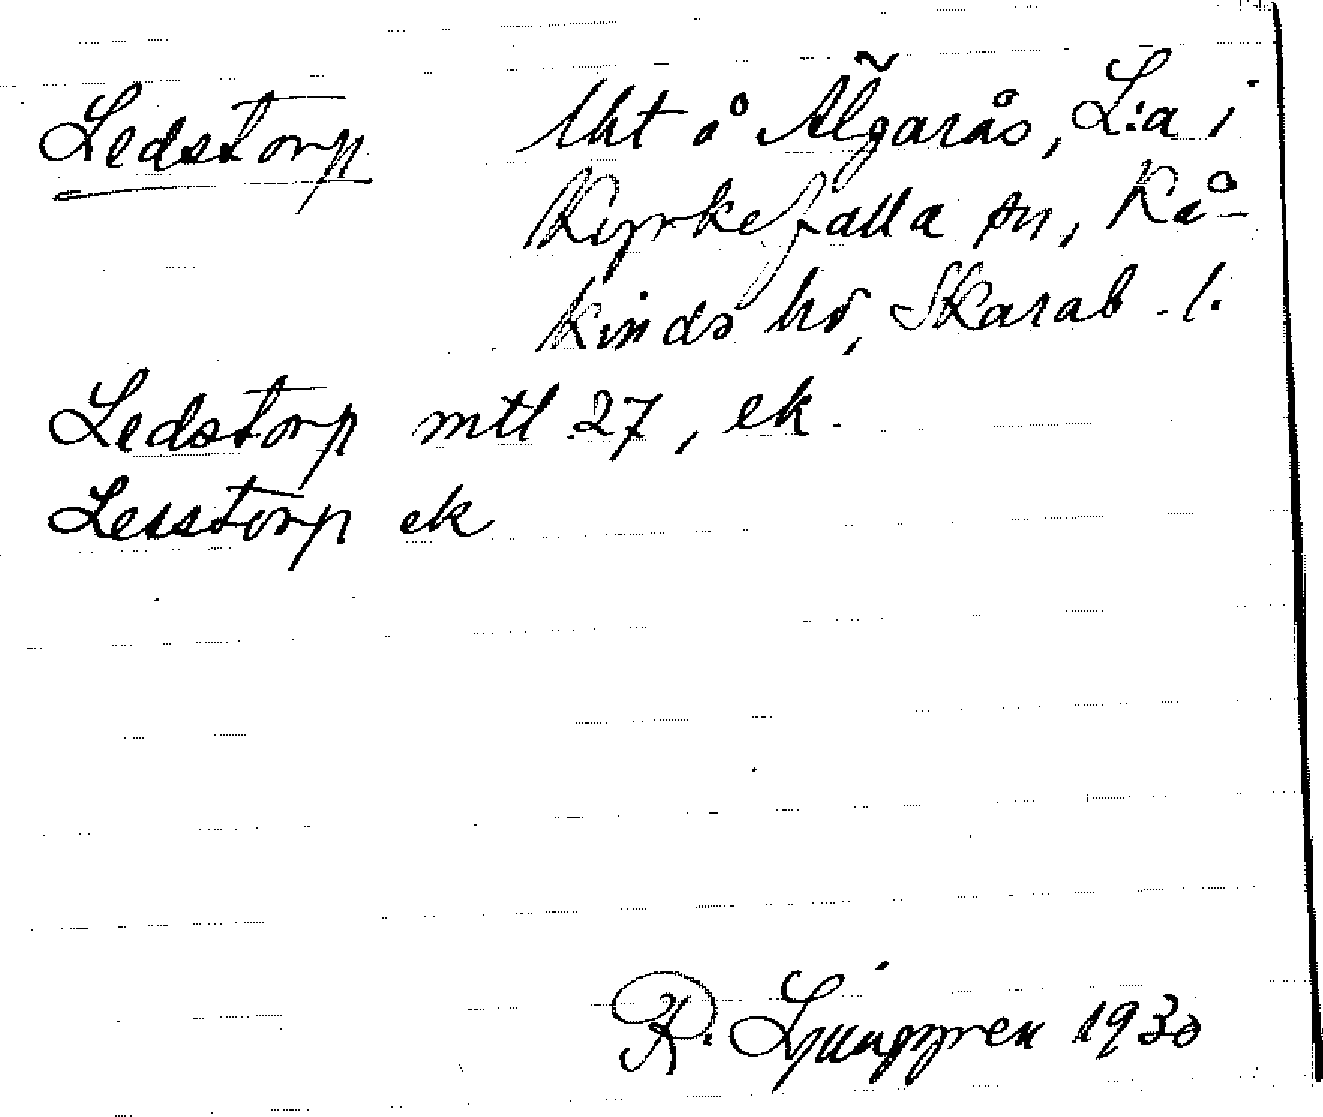 Ledstorp Uht å Älgarås, L:a i
Kyrkefalla sn, Kå-
kinds hd, Skarab. l.
Ledstorp mtl 27, ek.
Lesstorp ek
R. Ljunggren 1930